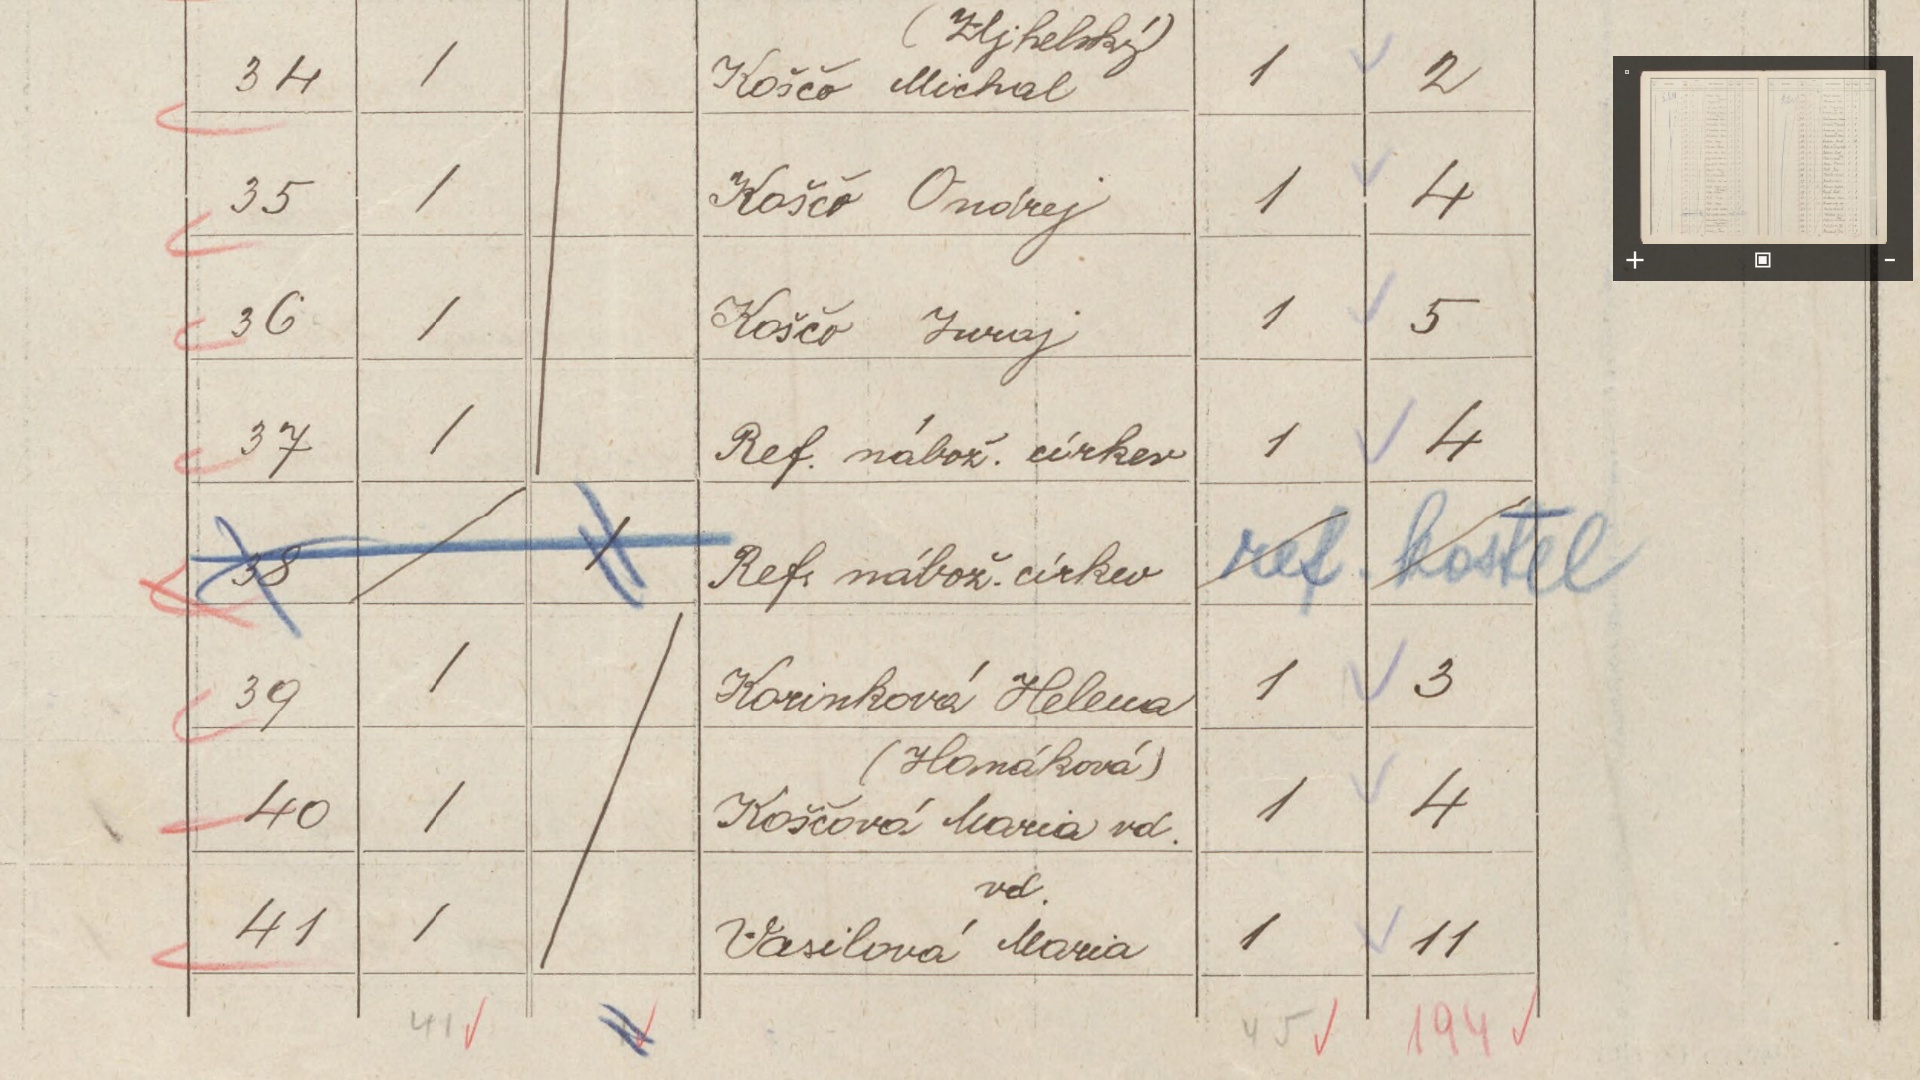 34 1 (Ujhelský) Koščo Michal 1 2
35 1 Koščo Ondrej 1 4
36 1 Koščo Juraj 1 5
37 1 Ref. nábož. církev 1 4
38 1 Ref. nábož. církev ref. kostel
39 1 Korinková Helena 1 3
40 1 (Hanáková) Koščová Maria vd. 1 4
41 1 vd. Vasilová Maria 1 11
41 45 194